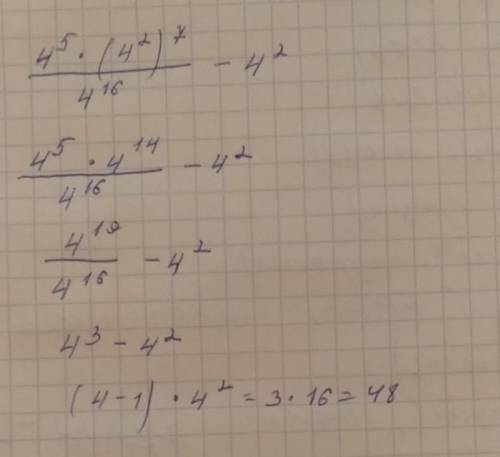 4^5 · (4^2)^7 / 4^16 − 4^2
4^5 · 4^14 / 4^16 − 4^2
4^19 / 4^16 − 4^2
4^3 − 4^2
(4−1) · 4^2 = 3 · 16 = 48